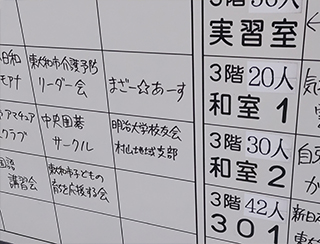 30人
実習室
日和
モアナ
東大和市介護予防
リーダー会
まざー☆あーす
3階 20人
和室 1
アマチュア
クラブ
中央囲碁
サークル
明治大学校友会
村山地域支部
3階 30人
和室 2
国語
講習会
東大和子どもの
育ちを応援する会
3階 42人
301